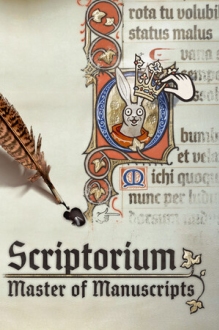 rota tu volubi
status malus
vana
bumb
et vela
Michi quoque
nunc per ludu
dorsum
Scriptorium
Master of Manuscripts